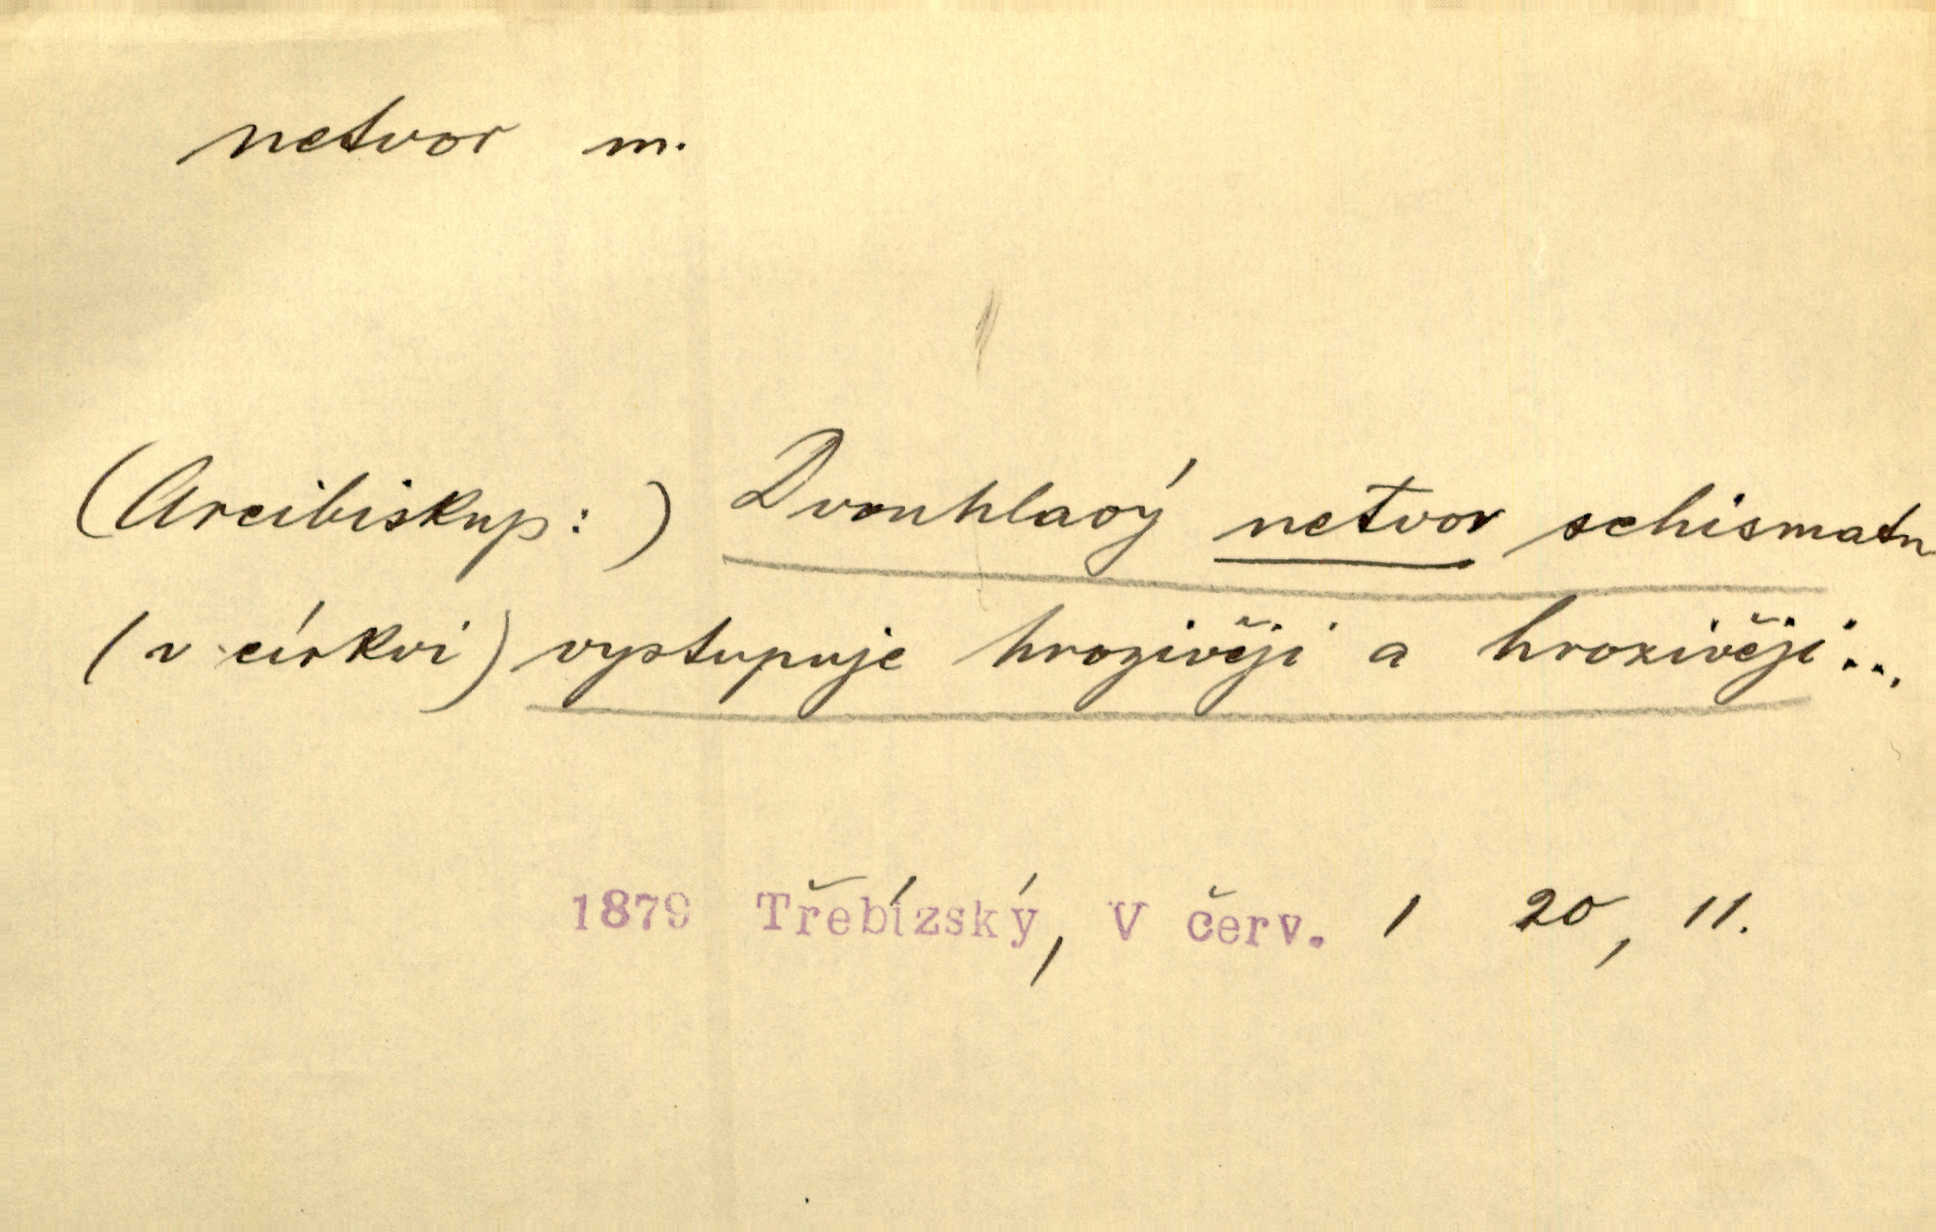 netvor m.
(Arcibiskup:) Dvouhlavý netvor schismatu
(v církvi) vystupuje hrozivěji a hrozivěji...
1879 Třebízský, V červ. 1 20, 11.